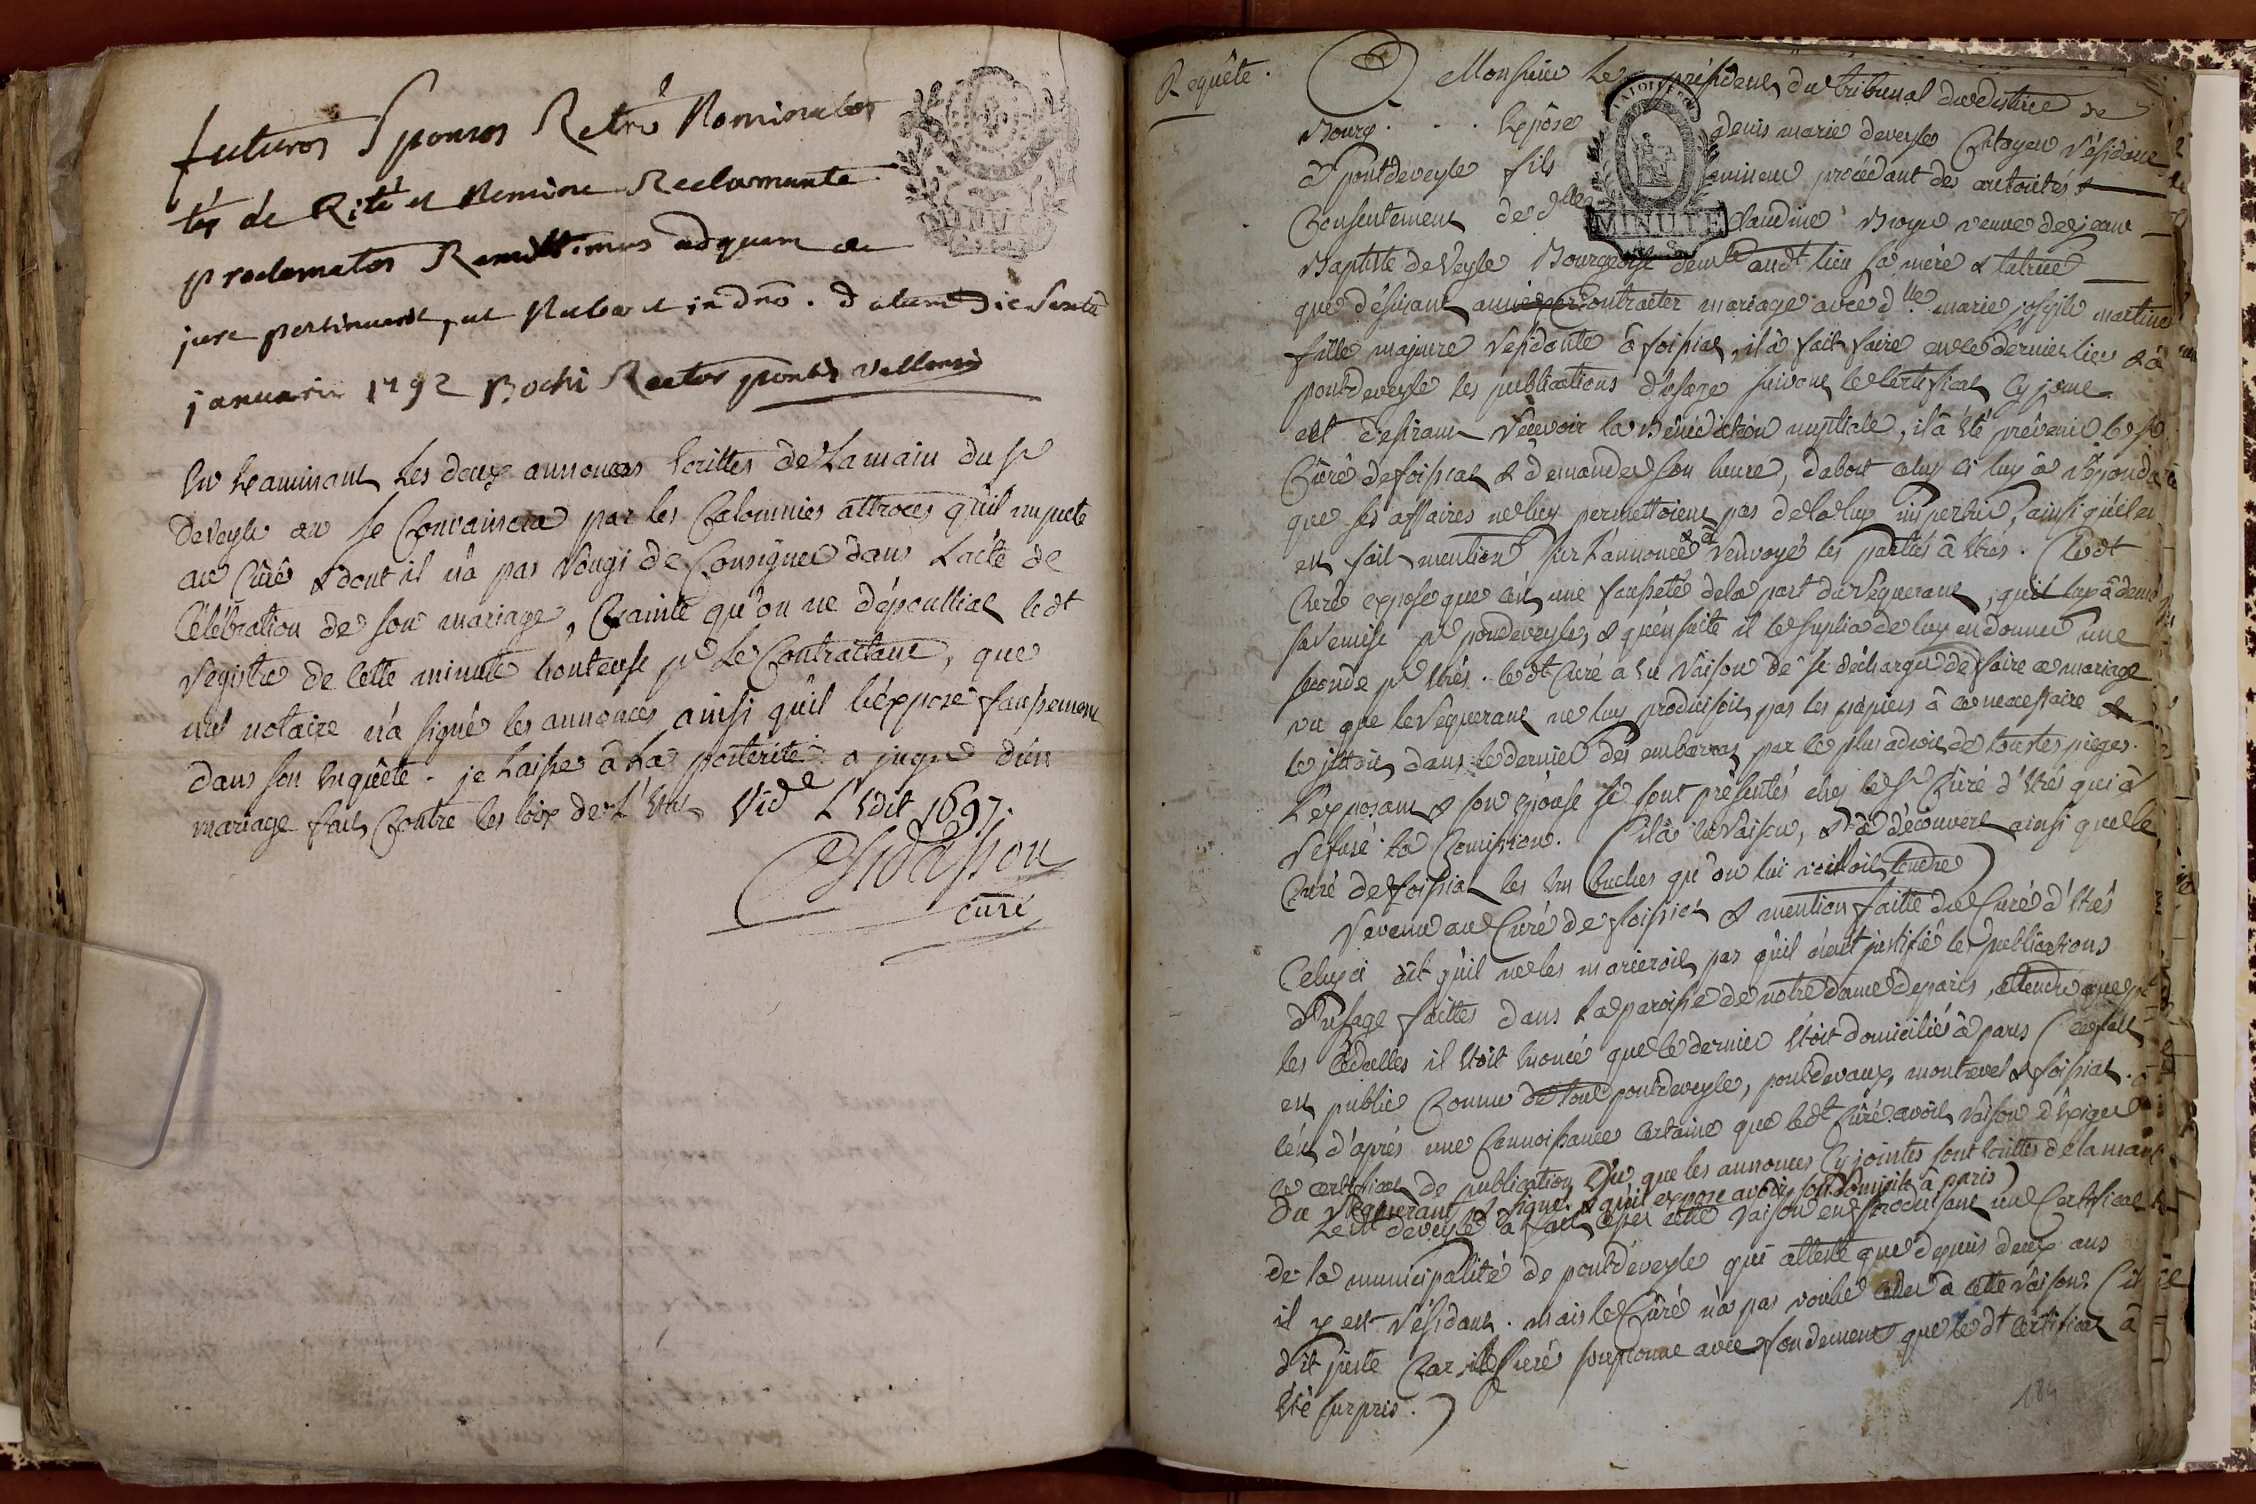 futuros Sponsos Retrò Nominatos
tès de Rité et Nemine Reclamante
proclamatos Remittimus ad quem de
jure pertinuerit, ut Nubant in dno. datum die
januarii 1792 Bochi Rector pontis vellensis
En Examinant les deux annonces Ecrittes de la main du Sr
deveyle on se Convaincra par les Calomnies attroces qu'il impute
au Curé & dont il n'a pas rougi de Consigner dans l'acte de
Célébration de son mariage, Crainte qu'on ne dépoulliat ledt
registre de cette minute honteuse pr le Contractant, que
nul notaire n'a signé les annonces ainsi qu'il l'expose faussement
dans son Enquête. je laisse à la postérité à juger d'un
mariage fait Contre les loix de l'Etat Vide L'Edit 1697.
curé
Requête.
A Monsieur le président du tribunal du district de
Bourg. Expose denis marie deveyle Citoyen résidant
à pontdeveyle fils mineur procédant des autorités &
Consentement de dlle Claudine Broyer veuve de jean
Baptiste de Veyle Bourgeoise demte audt lieu sa mère & tutrice
que désirant contracter mariage avec dlle marie josephe martine
fille majeure résidante à foissiat, il a fait faire en ce dernier lieu & à
pontdeveyle les publications d'usage suivant le certificat cy joint
et désirant recevoir la Bénédiction nuptiale, il a été prévenir le sr
Curé de foissiat & demander son heure, dabort celuy ci luy a répondu
que ses affaires ne luy permettoient pas de la luy impartir, ainsi qu'il en
est fait mention sur l'annonce & a renvoyé les parties à Etrés. (ledt
Curé expose que c'est une fausseté de la part du requerant, qu'il luy a demandé
sa remise pr pondeveyle, & qu'ensuite il le suplia de luy en donner une
seconde pr Etrés. ledt Curé a eu raison de se décharger de faire ce mariage
vu que le requerant ne luy produisoit pas les papiers à ce necessaire &
le jettoit dans le dernier des embarras par le plus adroit de tous les pieges.
L'exposant & son épouse se sont présentés chés le Sr Curé d'Etrés qui a
refusé la Comission. (il a eu raison, & a découvert ainsi que le
Curé de foissiat les Embuches qu'on lui vouloit tendre)
revenu au Curé de foissiat & mention faitte du Curé d'Etrés
Celuy ci dit qu'il ne les marieroit pas qu'il n'eut justifié les publications
d'usage faittes dans la paroisse de notre dame de paris, attendu que pr
les Cédulles il étoit Enoncé que le dernier étoit domicilié à paris (ce fait
est public Connu de tout pontdeveyle, pontdevaux, montrevel & foissiat.
c'est d'après une Connoissance certaine que ledt Curé avoit raison d'exiger
ce certificat de publication vu que les annonces cy jointes sont Ecrittes de la main
du requerant & signé & qu'il expose avoir son Domicile à paris)
le Sr deveyle a fait cesser cette raison en produisant un Certificat
de la municipalité de pontdeveyle qui atteste que depuis deux ans
il y est résidant. mais le Curé n'a pas voulu céder à cette raison. (il
dit juste Car le Curé soupconne avec fondement que ledt certificat a
été surpris.)
184
MINUTE